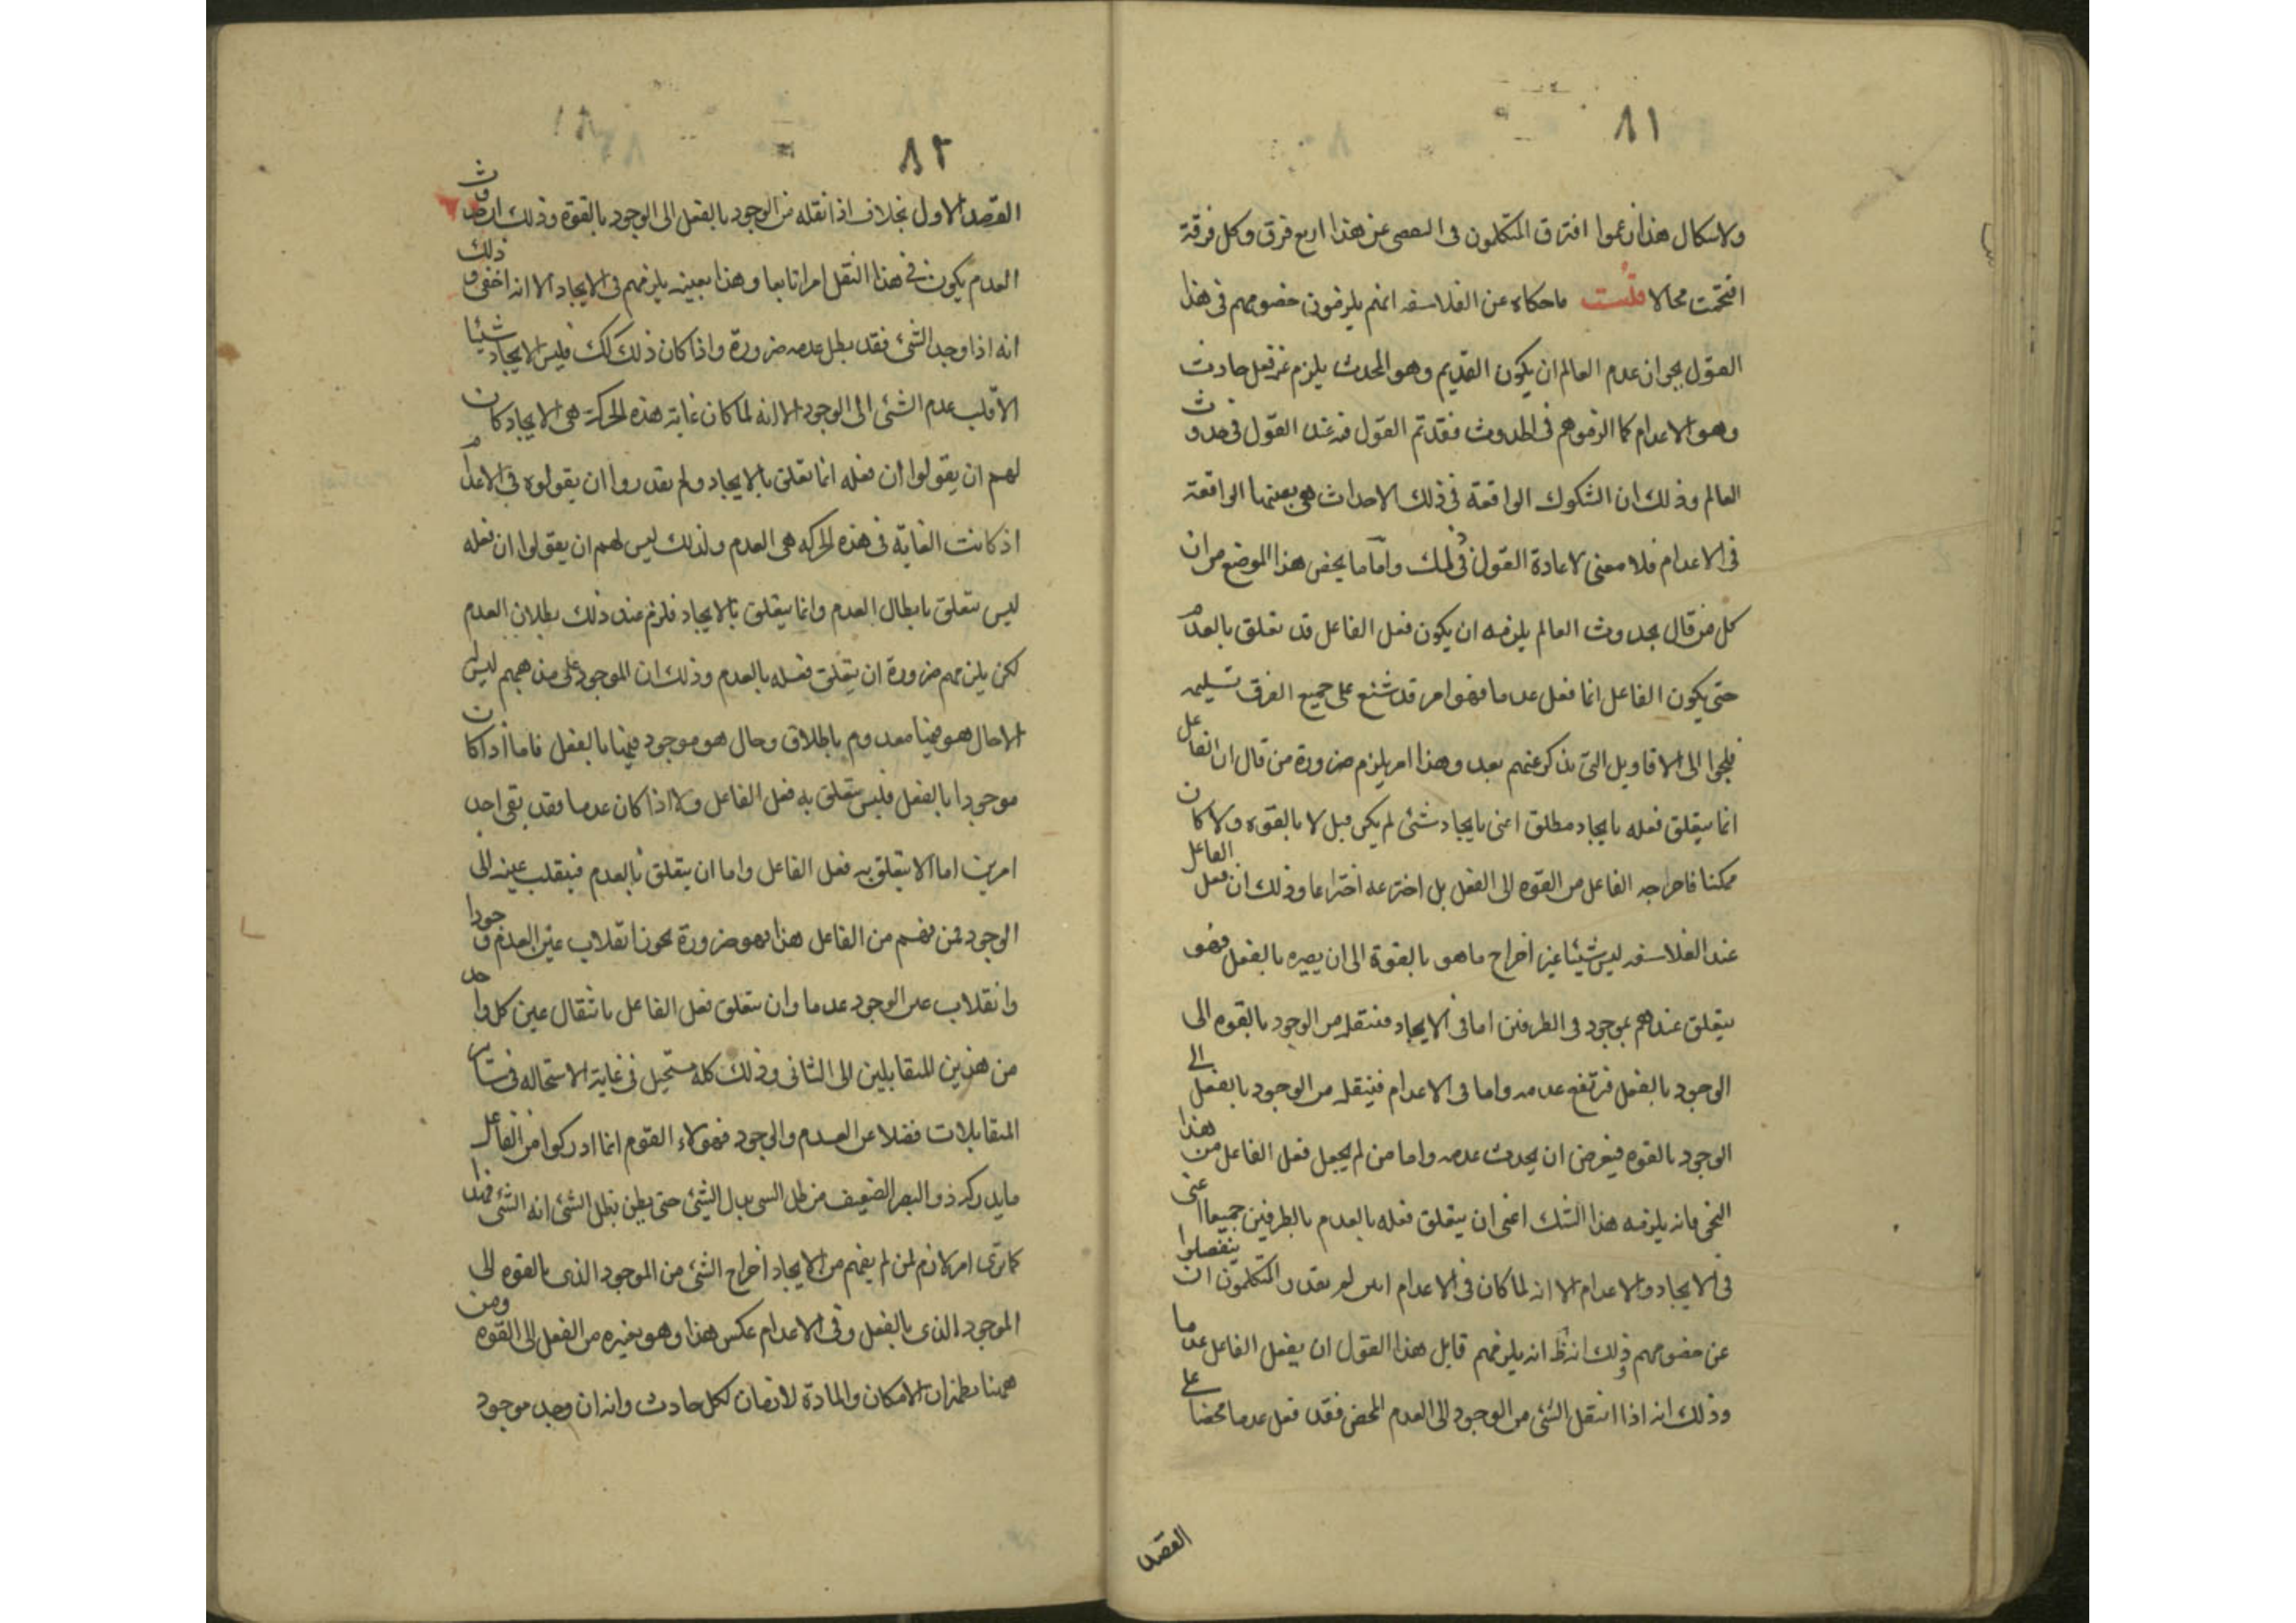 ٨١
ولاشكال هذا زعموا افترق المتكلمون فى التفصى عن هذا اربع فرق وكل فرقة
اقتحمت محالا قلت ما حكاه عن الفلاسفه انهم يلزمون خصومهم فى هذا
القول بجواز عدم العالم ان يكون القديم وهو المحدث يلزم عنه فعل حادث
وهو الاعدام كما الزموهم فى الحدوث فقد تم القول فيه عند القول فى حدوث
العالم وذلك ان الشكوك الواقعة فى ذلك الاحداث هى بعينها الواقعة
فى الاعدام فلا معنى لاعادة القول فى ذلك واما ما يخص هذا الموضع من ان
كل من قال بحدوث العالم يلزمه ان يكون فعل الفاعل قد تعلق بالعدم
حتى يكون الفاعل انما فعل عدما فهو امر قد شنع على جميع الفرق تسليمه
فلجوا الى الاقاويل التى نذكر عنهم بعد وهذا امر يلزم ضرورة من قال ان الفاعل
انما يتعلق فعله بايجاد مطلق اعنى بايجاد شئ لم يكن قبل لا بالقوه ولا كان
ممكنا فاخراجه الفاعل من القوه الى الفعل بل اخترعه اختراعا وذلك ان فعل الفاعل
عند الفلاسفه ليس شيئا غير اخراج ما هو بالقوة الى ان يصيره بالفعل فهو
يتعلق عندهم بموجود فى الطرفين اما فى الايجاد فينقله من الوجود بالقوه الى
الوجود بالفعل فيرتفع عدمه واما فى الاعدام فينقله من الوجود بالفعل الى
الوجود بالقوه فيعرض ان يحدث عدمه واما من لم يجعل فعل الفاعل من هذا
النحو فانه يلزمه هذا الشك اعنى ان يتعلق فعله بالعدم بالطرفين جميعا اعنى
فى الايجاد والاعدام الا انه لما كان فى الاعدام ابين لم يقدر المتكلمون ان ينفصلوا
عن خصومهم وذلك انه ظ انه يلزمهم قايل هذا القول ان يفعل الفاعل عدما
وذلك انه اذا انتقل الشئ من الوجود الى العدم المحض فقد فعل عدما محضا على
القصد
٨٢
القصد الاول بخلاف اذا نقله من الوجود بالفعل الى الوجود بالقوة وذلك ان حدوث
العدم يكون فى هذا النقل امرا تابعا وهذا بعينه يلزمهم فى الايجاد الا انه اخفى وذلك
انه اذا وجد الشئ فقد بطل عدمه ضرورة واذا كان ذلك كك فليس الايجاد شيئا
الا قلب عدم الشئ الى الوجود الا انه لما كان غاية هذه الحركة هى الايجاد كان
لهم ان يقولوا ان فعله انما تعلق بالايجاد ولم يقدروا ان يقولوه فى الاعدام
اذ كانت الغاية فى هذه الحركه هى العدم ولذلك ليس لهم ان يقولوا ان فعله
ليس يتعلق بابطال العدم وانما يتعلق بالايجاد فلزم عند ذلك بطلان العدم
لكن يلزمهم ضرورة ان يتعلق فعله بالعدم وذلك ان الموجود على مذهبهم ليس له
الا حال هو فيها معدوم باطلاق وحال هو موجود فيها بالفعل فاما اذا كان
موجودا بالفعل فليس يتعلق به فعل الفاعل ولا اذا كان عدما فقد بقى احد
امرين اما الا يتعلق به فعل الفاعل واما ان يتعلق بالعدم فينقلب عينه الى
الوجود فمن فهم من الفاعل هذا فهو ضرورة يجوز انقلاب عين العدم وجودا
وانقلاب عين الوجود عدما وان يتعلق فعل الفاعل بانتقال عين كل واحد
من هذين المتقابلين الى الثانى وذلك كله مستحيل فى غاية الاستحاله فى ساير
المتقابلات فضلا عن العدم والوجود فهولاء القوم انما ادركوا من الفاعل
ما يدركه ذو البصر الضعيف من ظل الشى بدل الشئ حتى يظن بظل الشئ انه الشئ فهذا
كما ترى امر لازم لمن لم يفهم من الايجاد اخراج الشئ من الموجود الذى بالقوه الى
الموجود الذى بالفعل وفى الاعدام عكس هذا وهو تغيره من الفعل الى القوه ومن
ههنا يظهر ان الامكان والمادة لازمان لكل حادث وانه ان وجد موجود